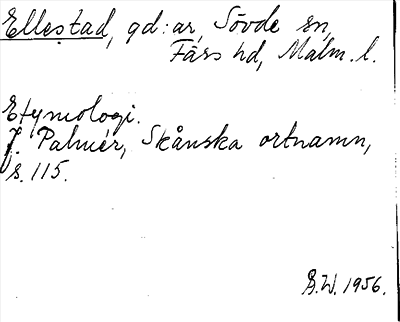 Ellestad, gd:ar, Sövde sn,
Färs hd, Malm. l.
Etymologi.
J. Palmér, Skånska ortnamn,
s. 115.
B.W. 1956.